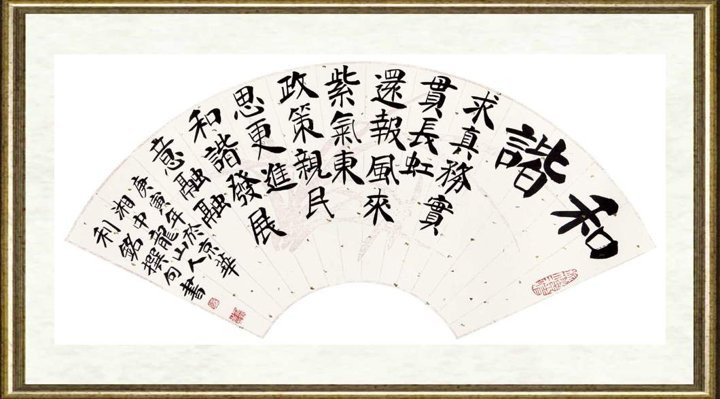 和諧
求真務實
貫長虹
還報風來
紫氣東
政策親民
思更進
和諧發展
意融融
庚寅年於京華
湘中龍山人
利銘撰句書